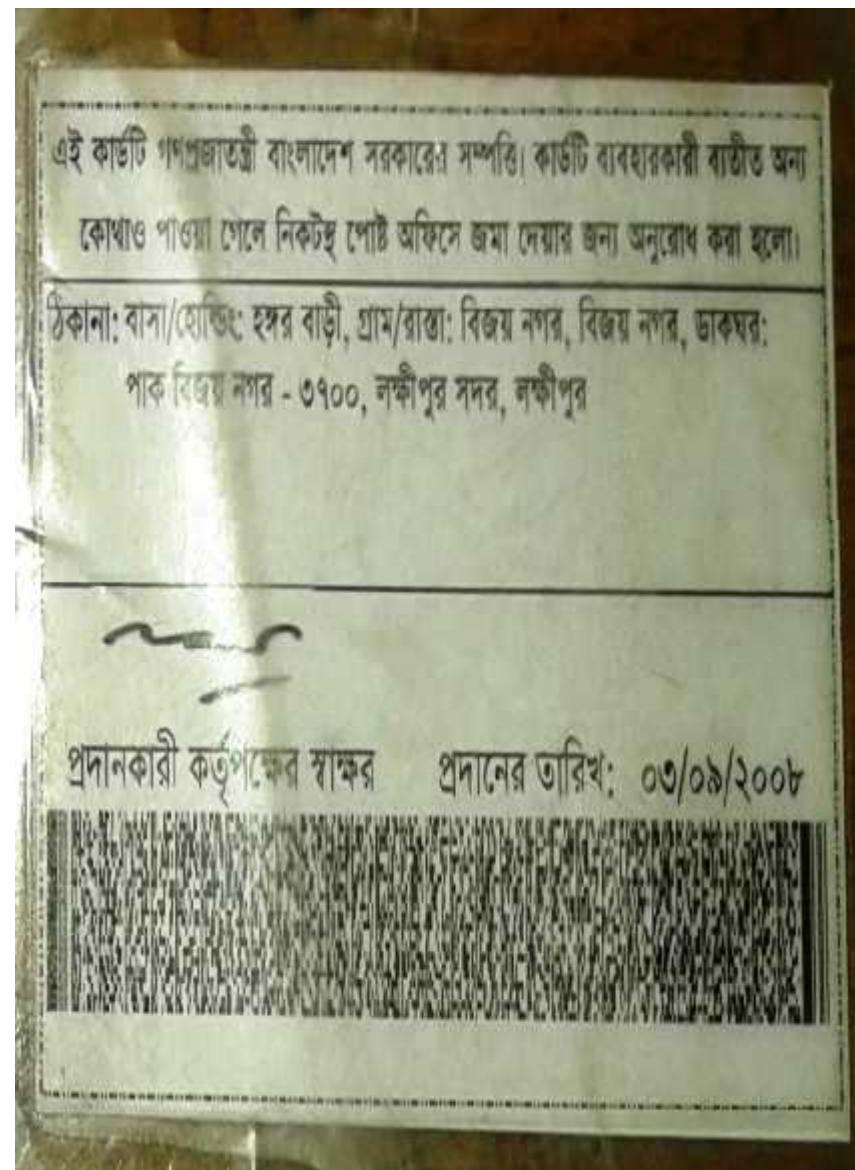 এই কার্ডটি গণপ্রজাতন্ত্রী বাংলাদেশ সরকারের সম্পত্তি। কার্ডটি ব্যবহারকারী ব্যতীত অন্য
কোথাও পাওয়া গেলে নিকটস্থ পোষ্ট অফিসে জমা দেয়ার জন্য অনুরোধ করা হলো।
ঠিকানা: বাসা/হোল্ডিং: হঙ্গর বাড়ী, গ্রাম/রাস্তা: বিজয় নগর, বিজয় নগর, ডাকঘর:
পাক বিজয় নগর - ৩৭০০, লক্ষীপুর সদর, লক্ষীপুর
প্রদানকারী কর্তৃপক্ষের স্বাক্ষর প্রদানের তারিখ: ০৩/০৯/২০০৮